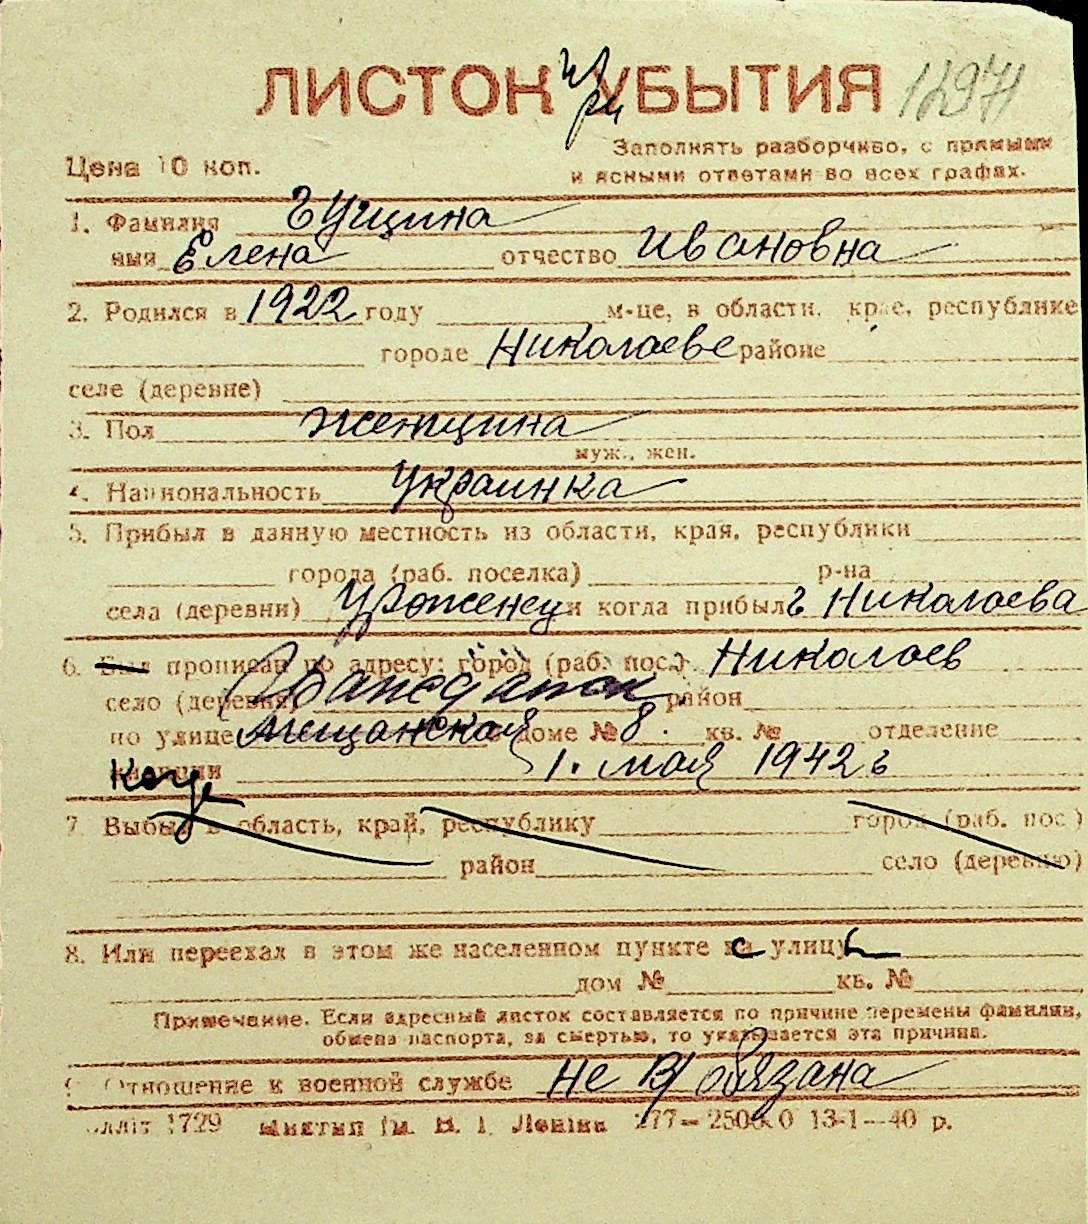 ЛИСТОК при УБЫТИЯ 12971
Цена 10 коп.
Заполнять разборчиво, с прямыми
и ясными ответами во всех графах.
1. Фамилия Гущина
имя Елена отчество Ивановна
2. Родился в 1922 году м-це, в области, крае, республике
городе Николаеве районе
селе (деревне)
3. Пол женщина
муж., жен.
4. Национальность Украинка
5. Прибыл в данную местность из области, края, республики
города (раб. поселка) р-на
села (деревни) Уроженец и когда прибыл г Николаева
6. Был прописан по адресу: город (раб. пос.) Николаев
село (деревня) район
по улице Мещанская доме № 8. кв. № отделение
милиции Когда 1. мая 1942 г
7. Выбыл в область, край, республику город (раб. пос.)
район село (деревню)
8. Или переехал в этом же населенном пункте с улицы
дом № кв. №
Примечание. Если адресный листок составляется по причине перемены фамилии,
обмена паспорта, за смертью, то указывается эта причина.
9. Отношение к военной службе Не в/обязана
1729 им. В. І. Леніна 277—25000 13-1—40 р.